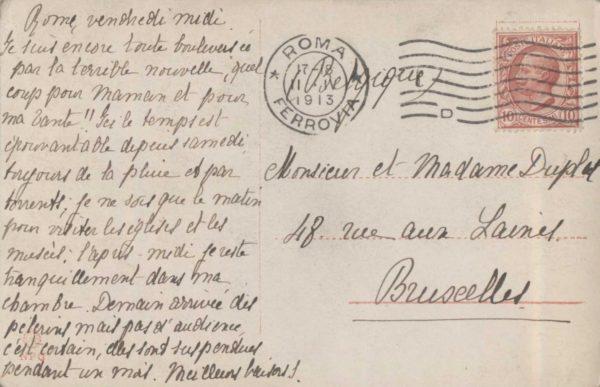 Rome, vendredi midi
Je suis encore toute bouleversée
par la terrible nouvelle, quel
coup pour Maman et pour
ma tante!! Ici le temps est
épouvantable depuis samedi
toujours de la pluie et par
torrents, je ne sors que le matin
pour visiter les églises et les
musées; l'après-midi je reste
tranquillement dans ma
chambre. Demain arrivée des
pélerins mais pas d'audience,
c'est certain, elles sont suspendues
pendant un mois. Meilleurs baisers!
ROMA
1913
FERROVIA
Belgique
D
POSTE ITALIANE
10 CENTESIMI 10
Monsieur et Madame
48 rue aux Laines
Bruxelles